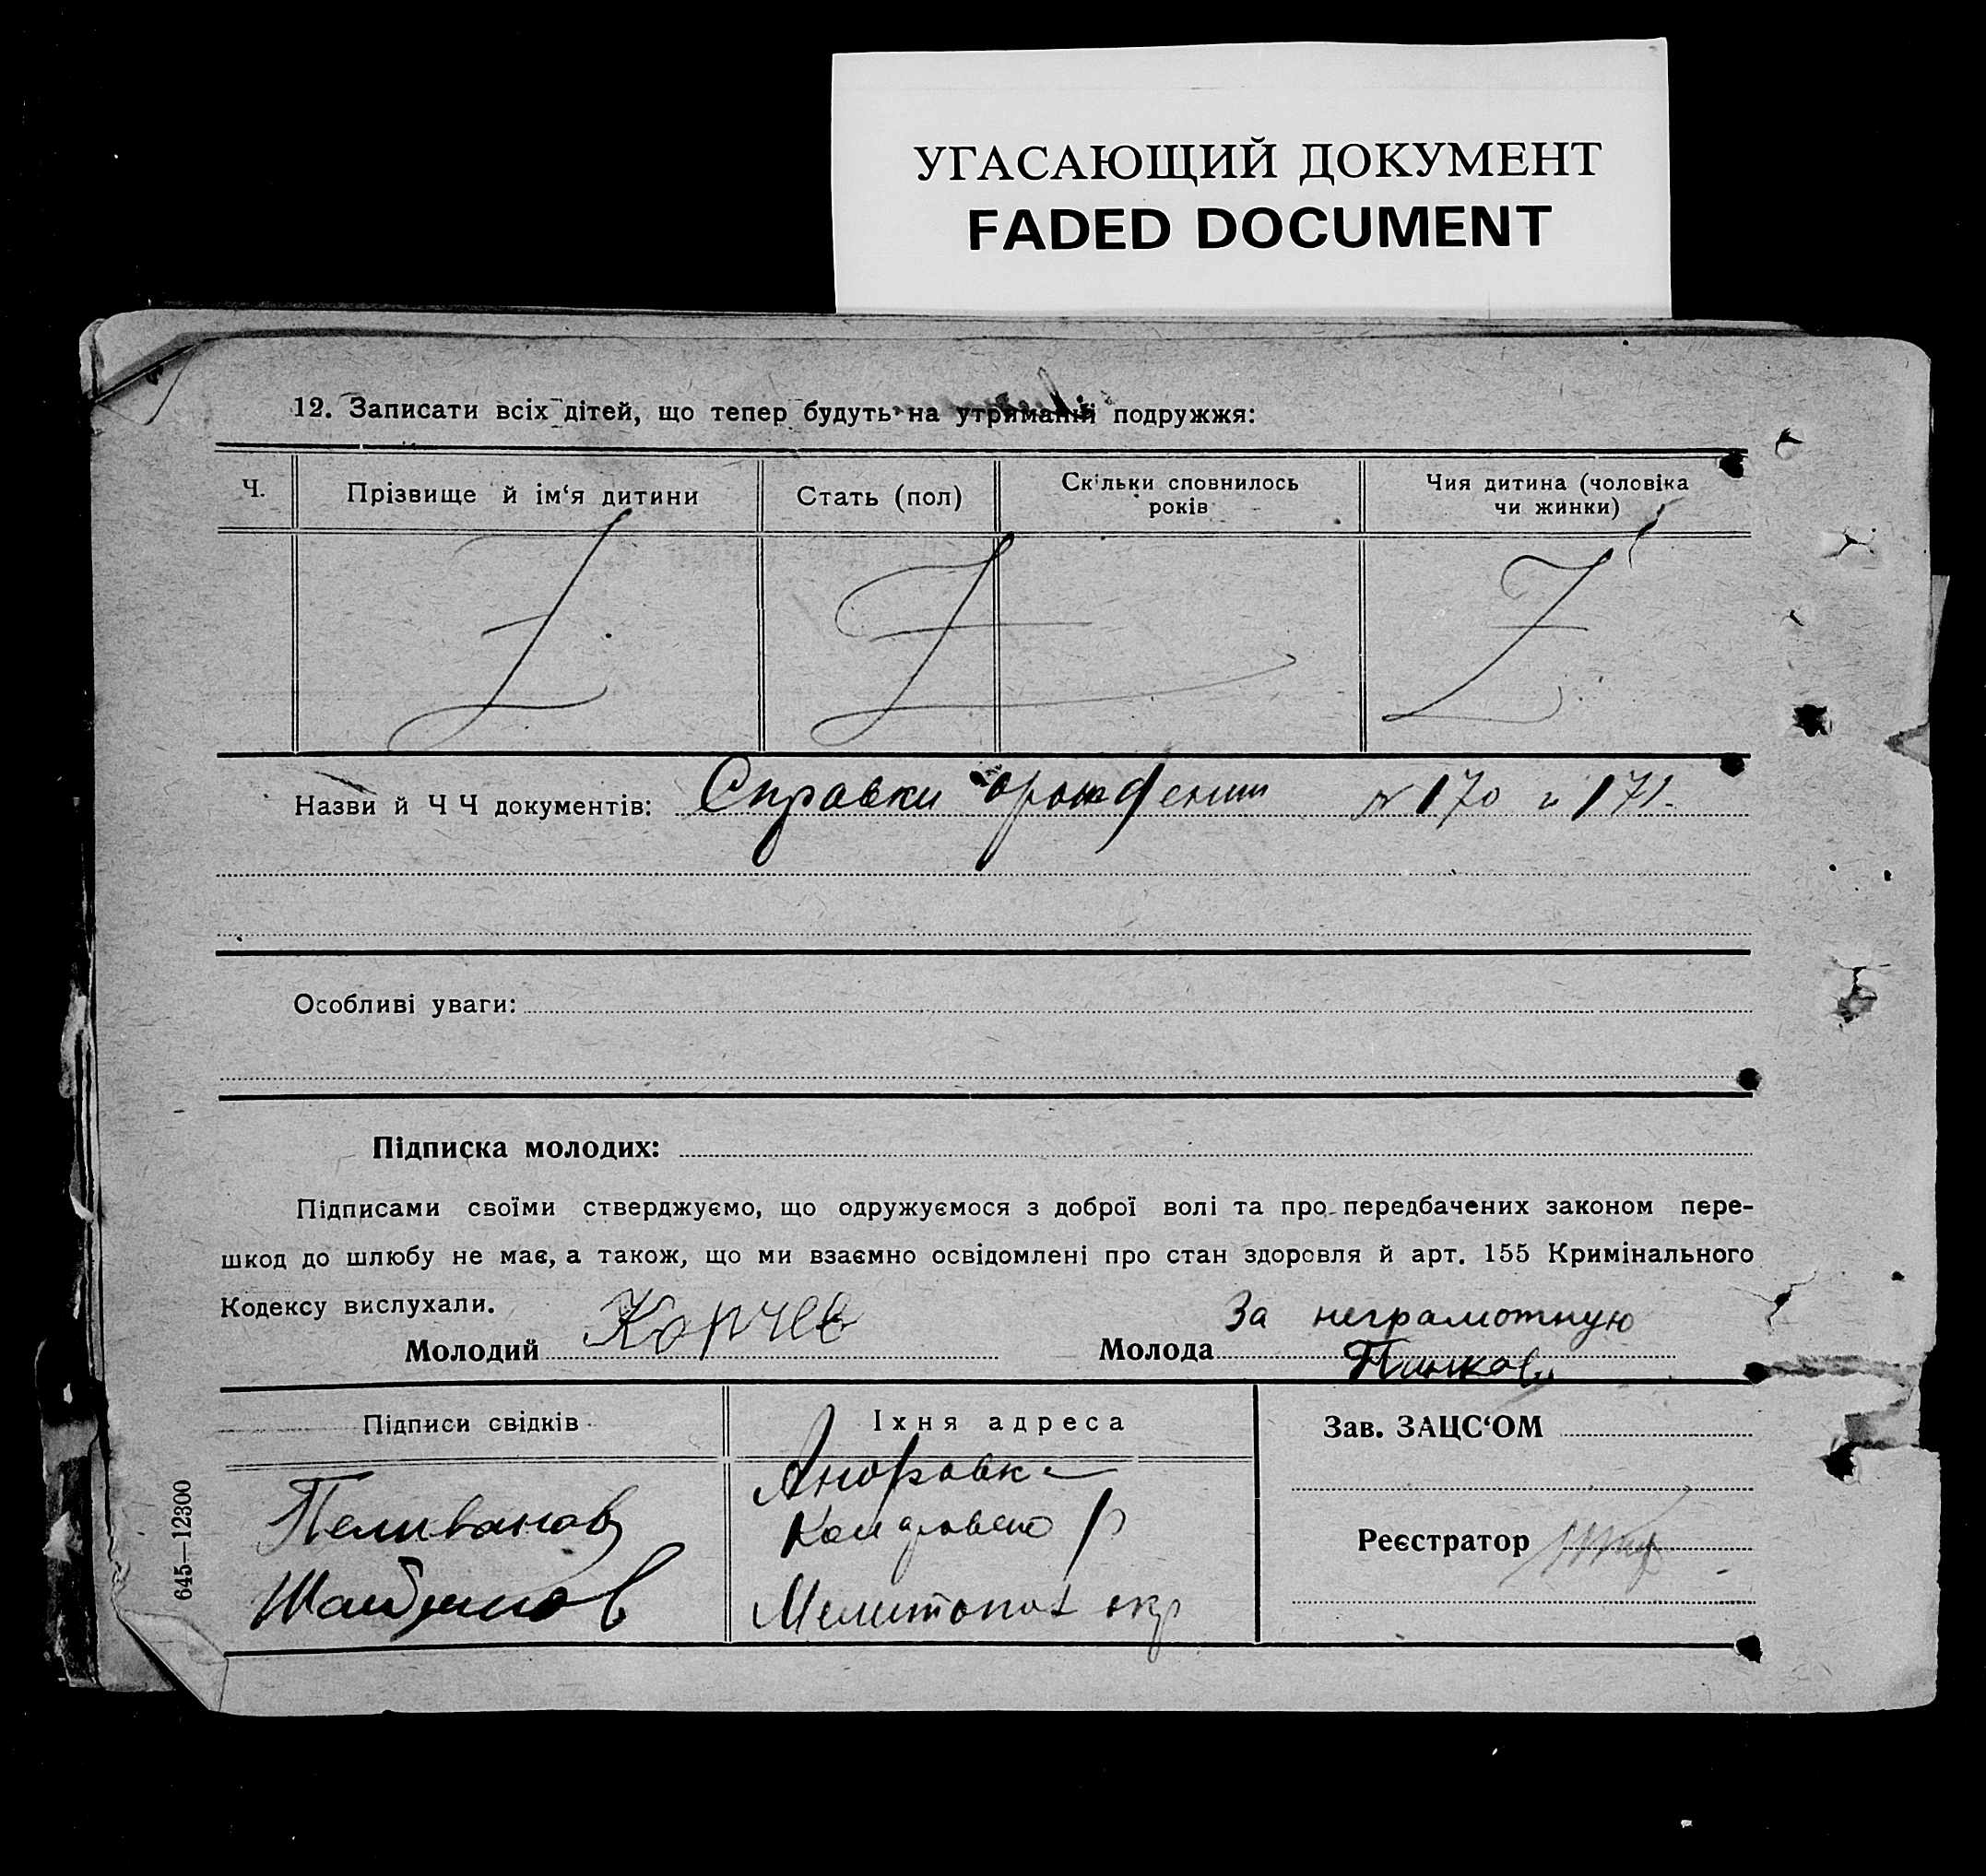 УГАСАЮЩИЙ ДОКУМЕНТ
FADED DOCUMENT
12. Записати всіх дітей, що тепер будуть на утриманні подружжя:
Ч.
Прізвище й ім‘я дитини
Стать (пол)
Скільки сповнилось років
Чия дитина (чоловіка чи жинки)
Назви й Ч Ч документів: Справки о рождении № 170 и 171.
Особливі уваги:
Підписка молодих:
Підписами своїми стверджуємо, що одружуємося з доброї волі та про передбачених законом пере-
шкод до шлюбу не має, а також, що ми взаємно освідомлені про стан здоровля й арт. 155 Кримінального
Кодексу вислухали.
Молодий Корчев
Молода За неграмотную
Підписи свідків
Їхня адреса
Зав. ЗАЦС‘ОМ
Пеливанов
Реєстратор
Мелитопол окр
645—12300